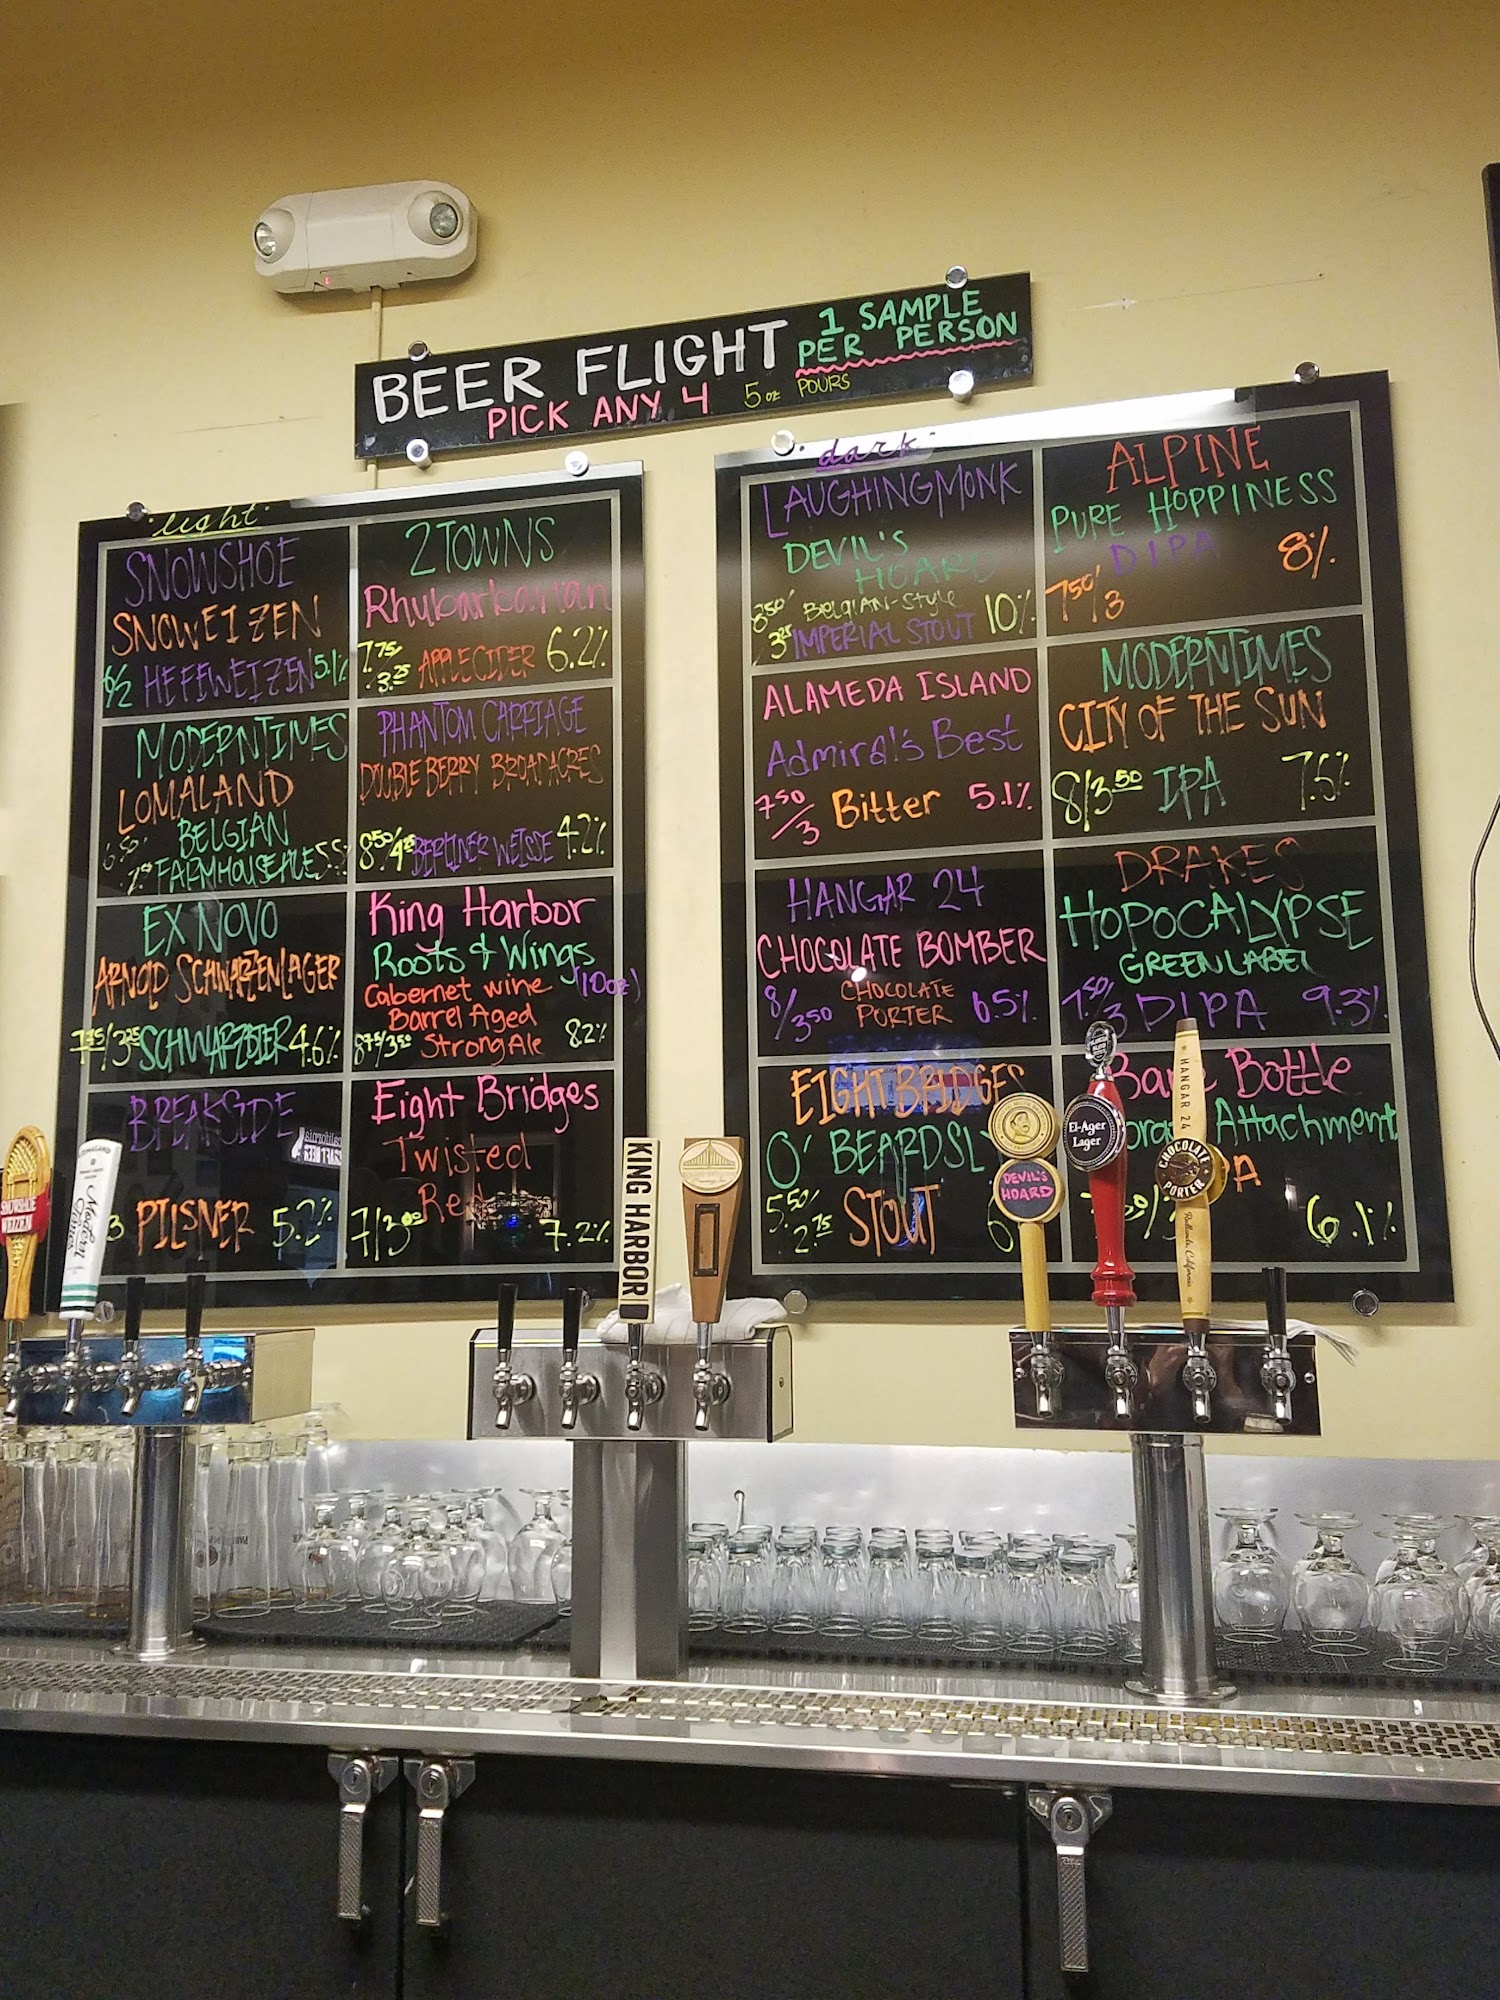 BEER FLIGHT 1 SAMPLE
PER PERSON
PICK ANY 4 5oz POURS
light
SNOWSHOE
SNOWEIZEN
6/2 HEFEWEIZEN 5.1%
MODERNTIMES
LOMALAND
BELGIAN
FARMHOUSE ALE
EX NOVO
ARNOLD SCHWARZENLAGER
7.75/3.25 SCHWARZBIER 4.6%
BREAKSIDE
3 PILSNER 5.2%
2TOWNS
Rhubarbarian
7.75/3.25 APPLE CIDER 6.2%
PHANTOM CARRIAGE
DOUBLE BERRY BROADACRES
8.50/4.25 BERLINER WEISSE 4.2%
King Harbor
Roots & Wings
Cabernet wine (10oz)
Barrel Aged
8.75/3.50 Strong Ale 8.2%
Eight Bridges
Twisted
Red
7/3.00 7.2%
dark
LAUGHINGMONK
DEVIL'S
HOARD
Belgian-Style
IMPERIAL STOUT 10%
ALAMEDA ISLAND
Admiral's Best
7.50/3 Bitter 5.1%
HANGAR 24
CHOCOLATE BOMBER
CHOCOLATE
8/3.50 PORTER 6.5%
EIGHT BRIDGES
O'BEARDSLY
5.50/2.75 STOUT 6
ALPINE
PURE HOPPINESS
DIPA 8%
7.50/3
MODERNTIMES
CITY OF THE SUN
8/3.50 IPA 7.5%
DRAKES
HOPOCALYPSE
GREEN LABEL
7.50/3 DIPA 9.3%
Bare Bottle
Attachment
6.1%
SNOWSHOE
WEIZEN
LOMALAND
Modern
Times
KING HARBOR
DEVIL'S
HOARD
El-Ager
Lager
HANGAR 24
CHOCOLATE
PORTER
Redlands, California